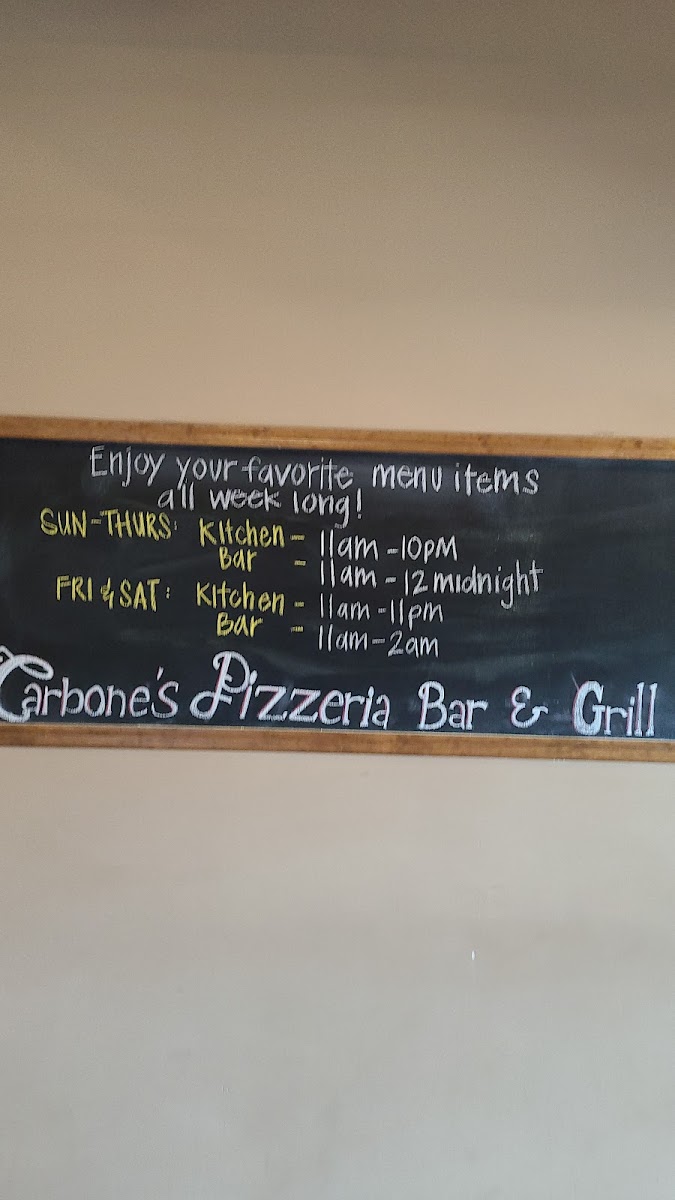 Enjoy your favorite menu items
all week long!
SUN-THURS: Kitchen - 11am-10pm
Bar - 11am-12midnight
FRI & SAT: Kitchen - 11am-11pm
Bar - 11am-2am
Carbone's Pizzeria Bar & Grill